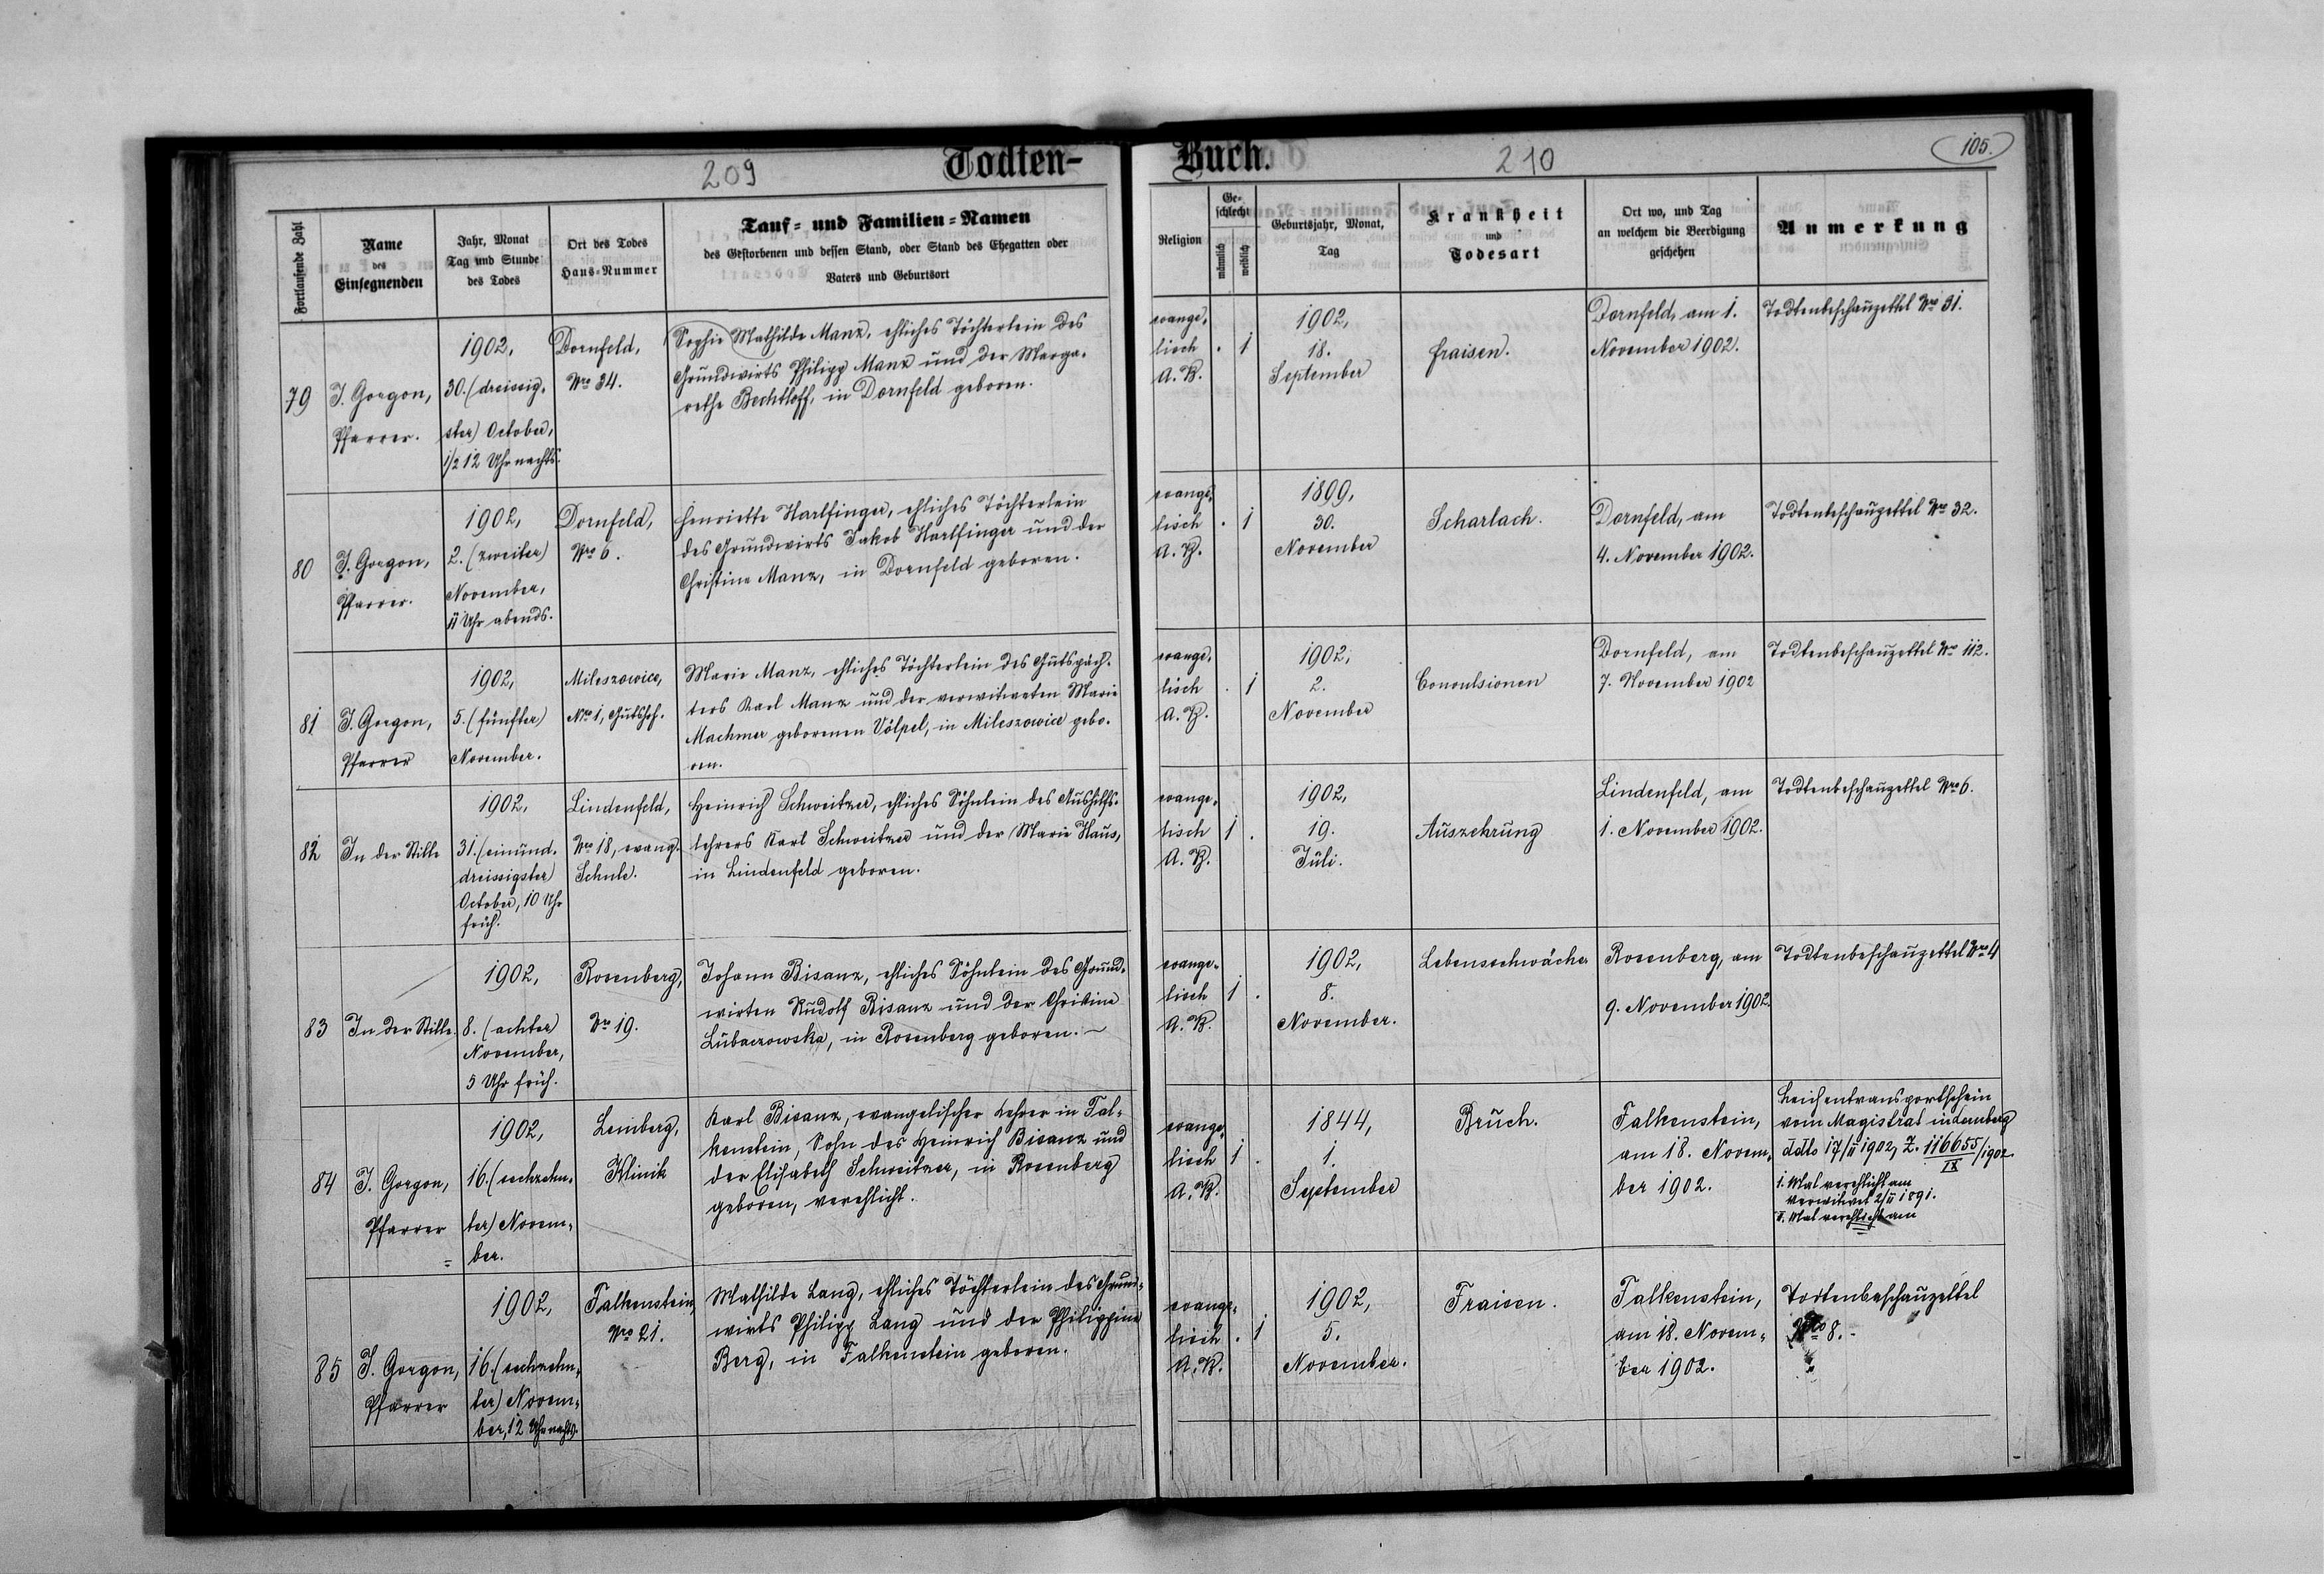 209
Todten-
Buch.
210
105.
Fortlaufende Zahl
Name
des
Einsegnenden
Jahr, Monat
Tag und Stunde
des Todes
Ort des Todes
Haus-Nummer
Tauf- und Familien-Namen
des Gestorbenen und dessen Stand, oder Stand des Ehegatten oder
Vaters und Geburtsort
Religion
Ge-
schlecht
männlich
weiblich
Geburtsjahr, Monat,
Tag
Krankheit
und
Todesart
Ort wo, und Tag
an welchem die Beerdigung
geschehen
Anmerkung
79
J. Gorgon,
Pfarrer.
1902,
30. (dreissig-
ster) October,
1/2 12 Uhr nachts.
Dornfeld,
Nro 34.
Sophie Mathilde Manz, ehliches Töchterlein des
Grundwirts Philipp Manz und der Marga-
rethe Bechtloff, in Dornfeld geboren.
evange-
lisch
A. B.
. 1
1902,
18.
September
Fraisen.
Dornfeld, am 1.
November 1902.
Todtenbeschauzettel Nro 31.
80
J. Gorgon,
Pfarrer.
1902,
2. (zweiter)
November,
11 Uhr abends.
Dornfeld,
Nro 6.
Henriette Harlfinger, ehliches Töchterlein
des Grundwirts Jakob Harlfinger und der
Christine Manz, in Dornfeld geboren.
evange-
lisch
A. B.
. 1
1899,
30.
November
Scharlach.
Dornfeld, am
4. November 1902.
Todtenbeschauzettel Nro 32.
81
J. Gorgon,
Pfarrer
1902,
5. (fünfter)
November.
Mileszowice,
Nro 1, Gutshof.
Marie Manz, ehliches Töchterlein des Gutspäch-
ters Karl Manz und der verwitweten Marie
Machmer geborenen Völpel, in Mileszowice gebo-
ren.
evange-
lisch
A. B.
. 1
1902,
2.
November
Convulsionen
Dornfeld, am
7. November 1902
Todtenbeschauzettel Nro 112.
82
In der Stille
1902,
31. (einund-
dreissigster)
October, 10 Uhr
früh.
Lindenfeld,
Nro 18, evang.
Schule.
Heinrich Schweitzer, ehliches Söhnlein des Aushilfs-
lehrers Karl Schweitzer und der Marie Haus,
in Lindenfeld geboren.
evange-
lisch
A. B.
1 .
1902,
19.
Juli.
Auszehrung
Lindenfeld, am
1. November 1902.
Todtenbeschauzettel Nro 6.
83
In der Stille.
1902,
8. (achter)
November,
5 Uhr früh.
Rosenberg,
Nr 19.
Johann Bisanz, ehliches Söhnlein des Grund-
wirten Rudolf Bisanz und der Christine
Lubaczowska, in Rosenberg geboren. ~
evange-
lisch
A. B.
1 .
1902,
8.
November.
Lebensschwäche
Rosenberg, am
9. November 1902.
Todtenbeschauzettel Nro 4
84
J. Gorgon,
Pfarrer
1902,
16. (sechzehn-
ter) Novem-
ber.
Lemberg,
Klinik
Karl Bisanz, evangelischer Lehrer in Fal-
kenstein, Sohn des Heinrich Bisanz und
der Elisabeth Schweitzer, in Rosenberg
geboren, verehlicht.
evange-
lisch
A. B.
1 .
1844,
1.
September
Bruch.
Falkenstein,
am 18. Novem-
ber 1902.
Leichentransportschein
vom Magistrat in Lemberg
ddto 17/11 1902, Z. 116655/IX /1902
1. Mal verehlicht am
verwitwet 2/11 1891.
2. Mal verehlicht am
85
J. Gorgon,
Pfarrer
1902,
16. (sechzehn-
ter) Novem-
ber, 12 Uhr nachts.
Falkenstein,
Nro 21.
Mathilde Lang, ehliches Töchterlein des Grund-
wirts Philipp Lang und der Philippine
Berg, in Falkenstein geboren.
evange-
lisch
A. B.
. 1
1902,
5.
November.
Fraisen.
Falkenstein,
am 18. Novem-
ber 1902.
Todtenbeschauzettel
Nro 8.-